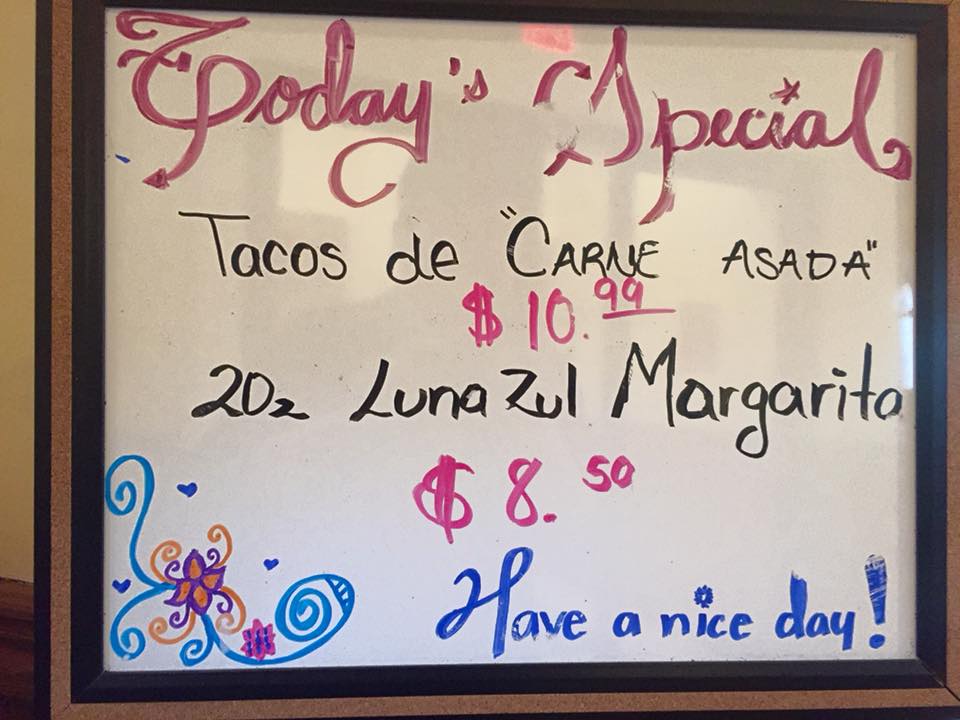 Today's Special
Tacos de "CARNE ASADA"
$10.99
20z LunaZul Margarita
$8.50
Have a nice day!